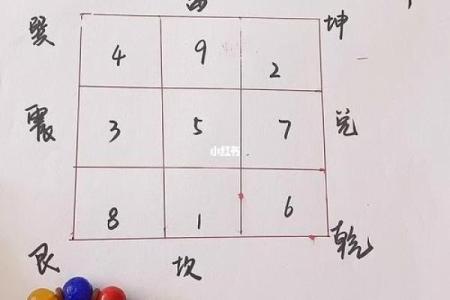 巽 4 9 2 坤
震 3 5 7 兑
小红书
8 1 6
艮 坎 乾